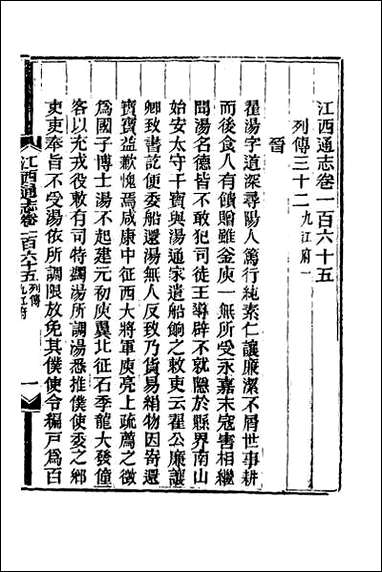 江西通志卷一百六十五
列傳三十二 九江府一
晉
翟湯字道深尋陽人篤行純素仁讓廉潔不屑世事耕
而後食人有饋贈雖釜庾一無所受永嘉末寇害相繼
聞湯名德皆不敢犯司徒王導辟不就隱於縣界南山
始安太守干寶與湯通家遣船餉之敕吏云翟公廉讓
卿致書訖便委船還湯無人反致乃貨易絹物因寄還
寶寶益歎愧焉咸康中征西大將軍庾亮上疏薦之徵
為國子博士湯不起建元初庾翼北征石季龍大發僮
客以充戎役敕有司特蠲湯所調湯悉推僕使委之鄉
吏吏奉旨不受湯依所調限放免其僕使令編戶為百
江西通志卷一百六十五 列傳 九江府 一